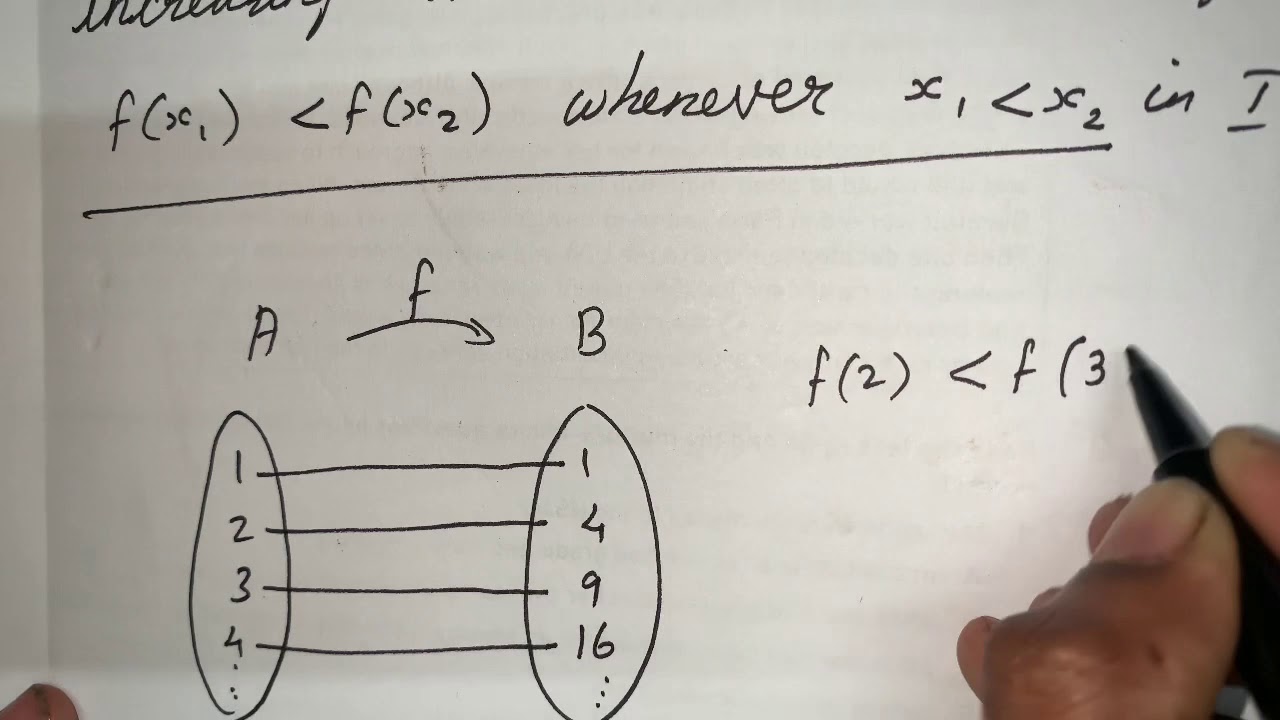 increasing
f(x₁) < f(x₂) whenever x₁ < x₂ in I
f
A B
f(2) < f(3
1 1
2 4
3 9
4 16
⋮ ⋮